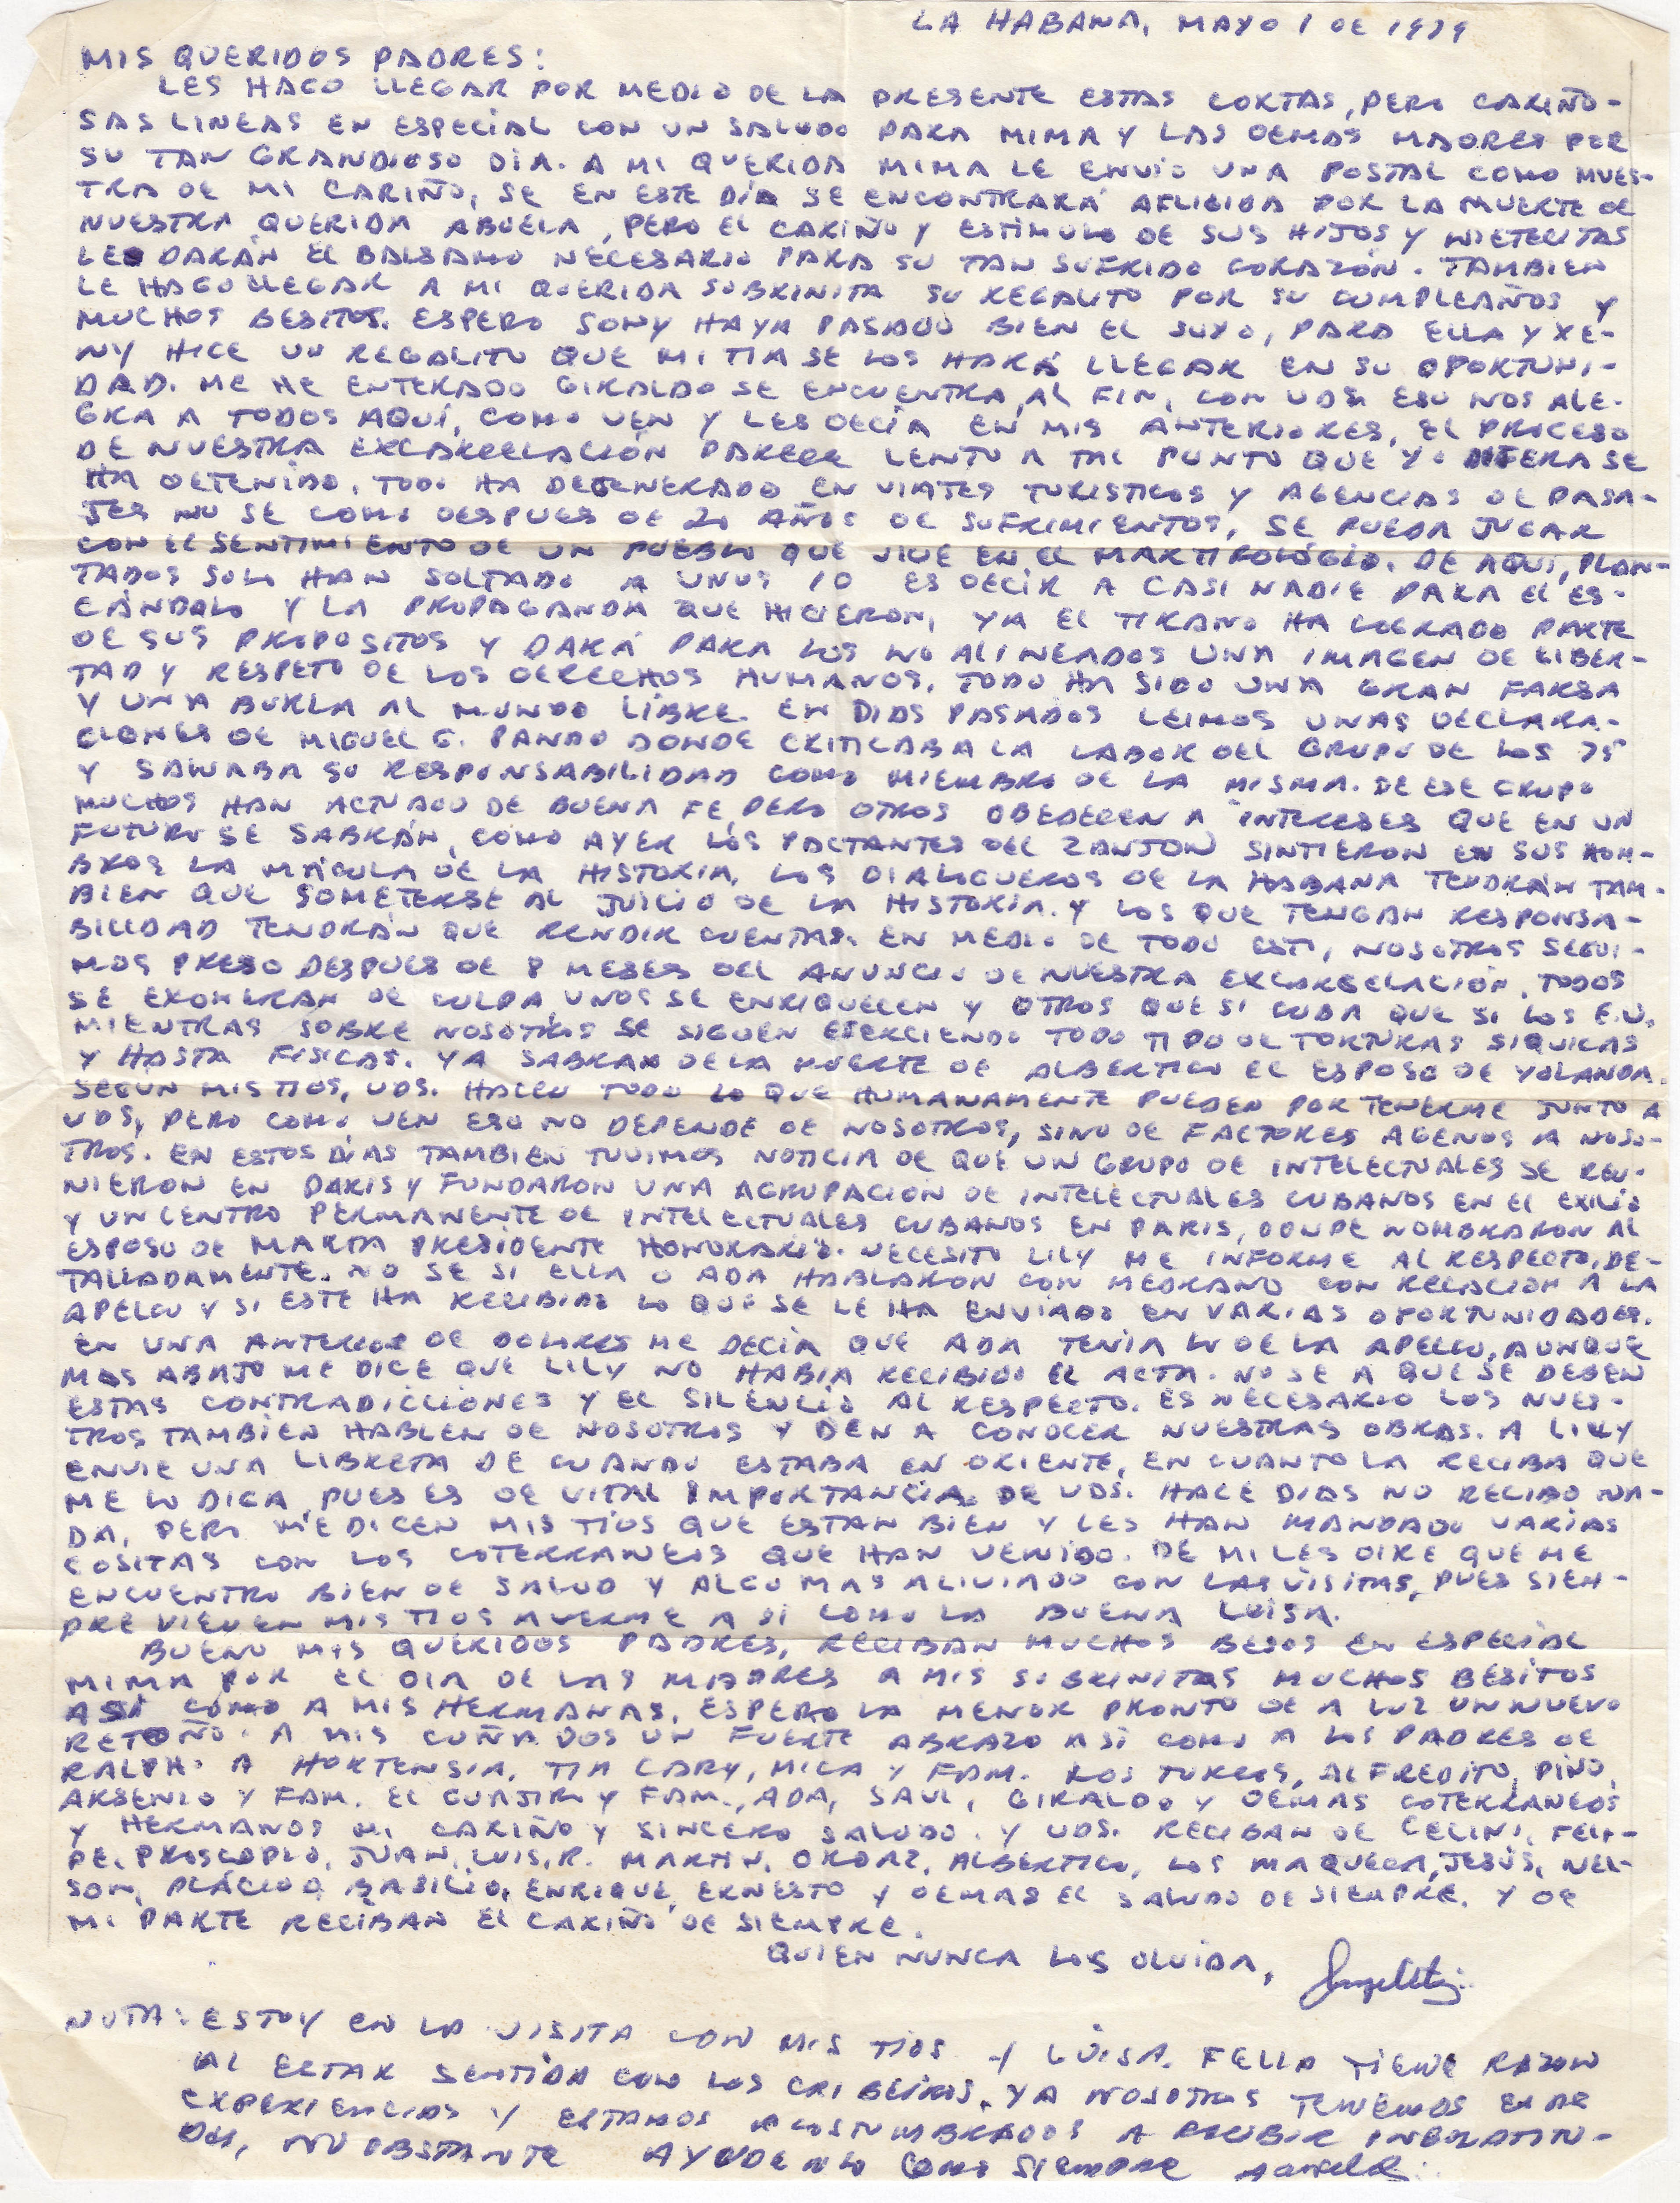 LA HABANA, MAYO 1 DE 1979
MIS QUERIDOS PADRES:
LES HAGO LLEGAR POR MEDIO DE LA PRESENTE ESTAS CORTAS, PERO CARIÑO-
SAS LINEAS EN ESPECIAL CON UN SALUDO PARA MIMA Y LAS DEMAS MADRES POR
SU TAN GRANDIOSO DIA. A MI QUERIDA MIMA LE ENVIO UNA POSTAL COMO MUES-
TRA DE MI CARIÑO, SE EN ESTE DÍA SE ENCONTRARÁ AFLIGIDA POR LA MUERTE DE
NUESTRA QUERIDA ABUELA, PERO EL CARIÑO Y ESTÍMULO DE SUS HIJOS Y NIETECITAS
LE DARÁN EL BALSAMO NECESARIO PARA SU TAN SUFRIDO CORAZÓN. TAMBIEN
LE HAGO LLEGAR A MI QUERIDA SOBRINITA SU REGALITO POR SU CUMPLEAÑOS Y
MUCHOS BESITOS. ESPERO SONY HAYA PASADO BIEN EL SUYO, PARA ELLA Y XE-
NY HICE UN REGALITO QUE MI TIA SE LOS HARÁ LLEGAR EN SU OPORTUNI-
DAD. ME HE ENTERADO GIRALDO SE ENCUENTRA, AL FIN, CON UDS. ESO NOS ALE-
GRA A TODOS AQUÍ, COMO VEN Y LES DECÍA EN MIS ANTERIORES, EL PROCESO
DE NUESTRA EXCARCELACIÓN PARECE LENTO A TAL PUNTO QUE YO DIJERA SE
HA DETENIDO, TODO HA DEGENERADO EN VIAJES TURISTICOS Y AGENCIAS DE PASA-
JES NO SE COMO DESPUES DE 20 AÑOS DE SUFRIMIENTOS, SE PUEDA JUGAR
CON EL SENTIMIENTO DE UN PUEBLO QUE VIVE EN EL MARTIROLÓGIO. DE AQUÍ, PLAN-
TADOS SOLO HAN SOLTADO A UNOS 10 ES DECIR A CASI NADIE PARA EL ES-
CÁNDALO Y LA PROPAGANDA QUE HICIERON, YA EL TIRANO HA LOGRADO PARTE
DE SUS PROPOSITOS Y DARÁ PARA LOS NO ALINEADOS UNA IMAGEN DE LIBER-
TAD Y RESPETO DE LOS DERECHOS HUMANOS. TODO HA SIDO UNA GRAN FARSA
Y UNA BURLA AL MUNDO LIBRE. EN DIAS PASADOS LEIMOS UNAS DECLARA-
CIONES DE MIGUEL G. PANDO DONDE CRITICABA LA LABOR DEL GRUPO DE LOS 75
Y SALVABA SU RESPONSABILIDAD COMO MIEMBRO DE LA MISMA. DE ESE GRUPO
MUCHOS HAN ACTUADO DE BUENA FE, PERO OTROS OBEDECEN A INTERESES QUE EN UN
FUTURO SE SABRÁN, COMO AYER LOS PACTANTES DEL ZANJON SINTIERON EN SUS HOM-
BROS LA MÁCULA DE LA HISTORIA, LOS DIALOGUEROS DE LA HABANA TENDRÁN TAM-
BIEN QUE SOMETERSE AL JUICIO DE LA HISTORIA. Y LOS QUE TENGAN RESPONSA-
BILIDAD TENDRÁN QUE RENDIR CUENTAS. EN MEDIO DE TODO ESTO, NOSOTROS SEGUI-
MOS PRESO DESPUES DE 8 MESES DEL ANUNCIO DE NUESTRA EXCARCELACIÓN, TODOS
SE EXONERAN DE CULPA, UNOS SE ENRIQUECEN Y OTROS QUE SI CUBA QUE SI LOS E.U.
MIENTRAS SOBRE NOSOTROS SE SIGUEN EJERCIENDO TODO TIPO DE TORTURAS SIQUICAS
Y HASTA FISICAS. YA SABRAN DE LA MUERTE DE ALBERTICO EL ESPOSO DE YOLANDA.
SEGUN MIS TIOS, UDS. HACEN TODO LO QUE HUMANAMENTE PUEDEN POR TENERME JUNTO A
UDS, PERO COMO VEN ESO NO DEPENDE DE NOSOTROS, SINO DE FACTORES AGENOS A NOSO-
TROS. EN ESTOS DÍAS TAMBIEN TUVIMOS NOTICIA DE QUE UN GRUPO DE INTELECTUALES SE REU-
NIERON EN PARIS Y FUNDARON UNA AGRUPACION DE INTELECTUALES CUBANOS EN EL EXILIO
Y UN CENTRO PERMANENTE DE INTELECTUALES CUBANOS EN PARIS, DONDE NOMBRARON AL
ESPOSO DE MARTA PRESIDENTE HONORARIO. NECESITO LILY ME INFORME AL RESPECTO, DE-
TALLADAMENTE. NO SE SI ELLA O ADA HABLARON CON MEDRANO CON RELACION A LA
APELCU Y SI ESTE HA RECIBIDO LO QUE SE LE HA ENVIADO EN VARIAS OPORTUNIDADES.
EN UNA ANTERIOR DE DOLORES ME DECÍA QUE ADA TENIA LO DE LA APELCU, AUNQUE
MAS ABAJO ME DICE QUE LILY NO HABIA RECIBIDO EL ACTA. NO SE A QUE SE DEBEN
ESTAS CONTRADICCIONES Y EL SILENCIO AL RESPECTO. ES NECESARIO LOS NUES-
TROS TAMBIEN HABLEN DE NOSOTROS Y DEN A CONOCER NUESTRAS OBRAS. A LILY
ENVIE UNA LIBRETA DE CUANDO ESTABA EN ORIENTE, EN CUANTO LA RECIBA QUE
ME LO DICA, PUES ES DE VITAL IMPORTANCIA. DE UDS. HACE DIAS NO RECIBO NA-
DA, PERO ME DICEN MIS TÍOS QUE ESTAN BIEN Y LES HAN MANDADO VARIAS
COSITAS CON LOS COTERRANEOS QUE HAN VENIDO. DE MI LES DIRE QUE ME
ENCUENTRO BIEN DE SALUD Y ALGO MAS ALIVIADO CON LAS VISITAS, PUES SIEM-
PRE VIENEN MIS TIOS A VERME A SI COMO LA BUENA LUISA.
BUENO MIS QUERIDOS PADRES, RECIBAN MUCHOS BESOS EN ESPECIAL
MIMA POR EL DIA DE LAS MADRES A MIS SOBRINITAS MUCHOS BESITOS
ASI COMO A MIS HERMANAS, ESPERO LA MENOR PRONTO DE A LUZ UN NUEVO
RETOÑO. A MIS CUÑADOS UN FUERTE ABRAZO ASI COMO A LOS PADRES DE
RALPH. A HORTENSIA, TIA CARY, MICA Y FAM. LOS TURCOS, ALFREDITO, PINO,
ARSENIO Y FAM. EL GUAJIRO Y FAM., ADA, SAUL, GIRALDO Y DEMAS COTERRANEOS
Y HERMANOS MI CARIÑO Y SINCERO SALUDO. Y UDS. RECIBAN DE CELINI, FELI-
PE, PROSCOPIO, JUAN, LUIS, R. MARTIN, ORDAZ, ALBERTICO, LOS MAQUEDA, JESÚS, NEL-
SON, PLÁCIDO, BASILIO, ENRIQUE, ERNESTO Y DEMAS EL SALUDO DE SIEMPRE. Y DE
MI PARTE RECIBAN EL CARIÑO DE SIEMPRE.
QUIEN NUNCA LOS OLVIDA,
NOTA: ESTOY EN LA VISITA CON MIS TIOS Y LUISA. FELLA TIENE RAZON
AL ESTAR SENTIDA CON LOS CRIBEIROS. YA NOSOTROS TENEMOS
EXPERIENCIAS Y ESTAMOS ACOSTUMBRADOS A RECIBIR INGRATITU-
DES, NO OBSTANTE AYUDENLO COMO SIEMPRE